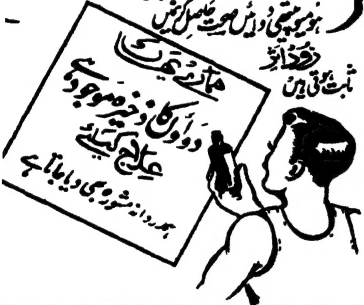 ہومیوپیتھی دوائیں صحت حاصل کرنیں
زود اثر
ثابت ہوتی ہیں
ہمارے یہاں
دواؤں کا ذخیرہ موجود ہے
علاج کیلئے
ہمدردانہ مشورہ بھی دیا جاتا ہے